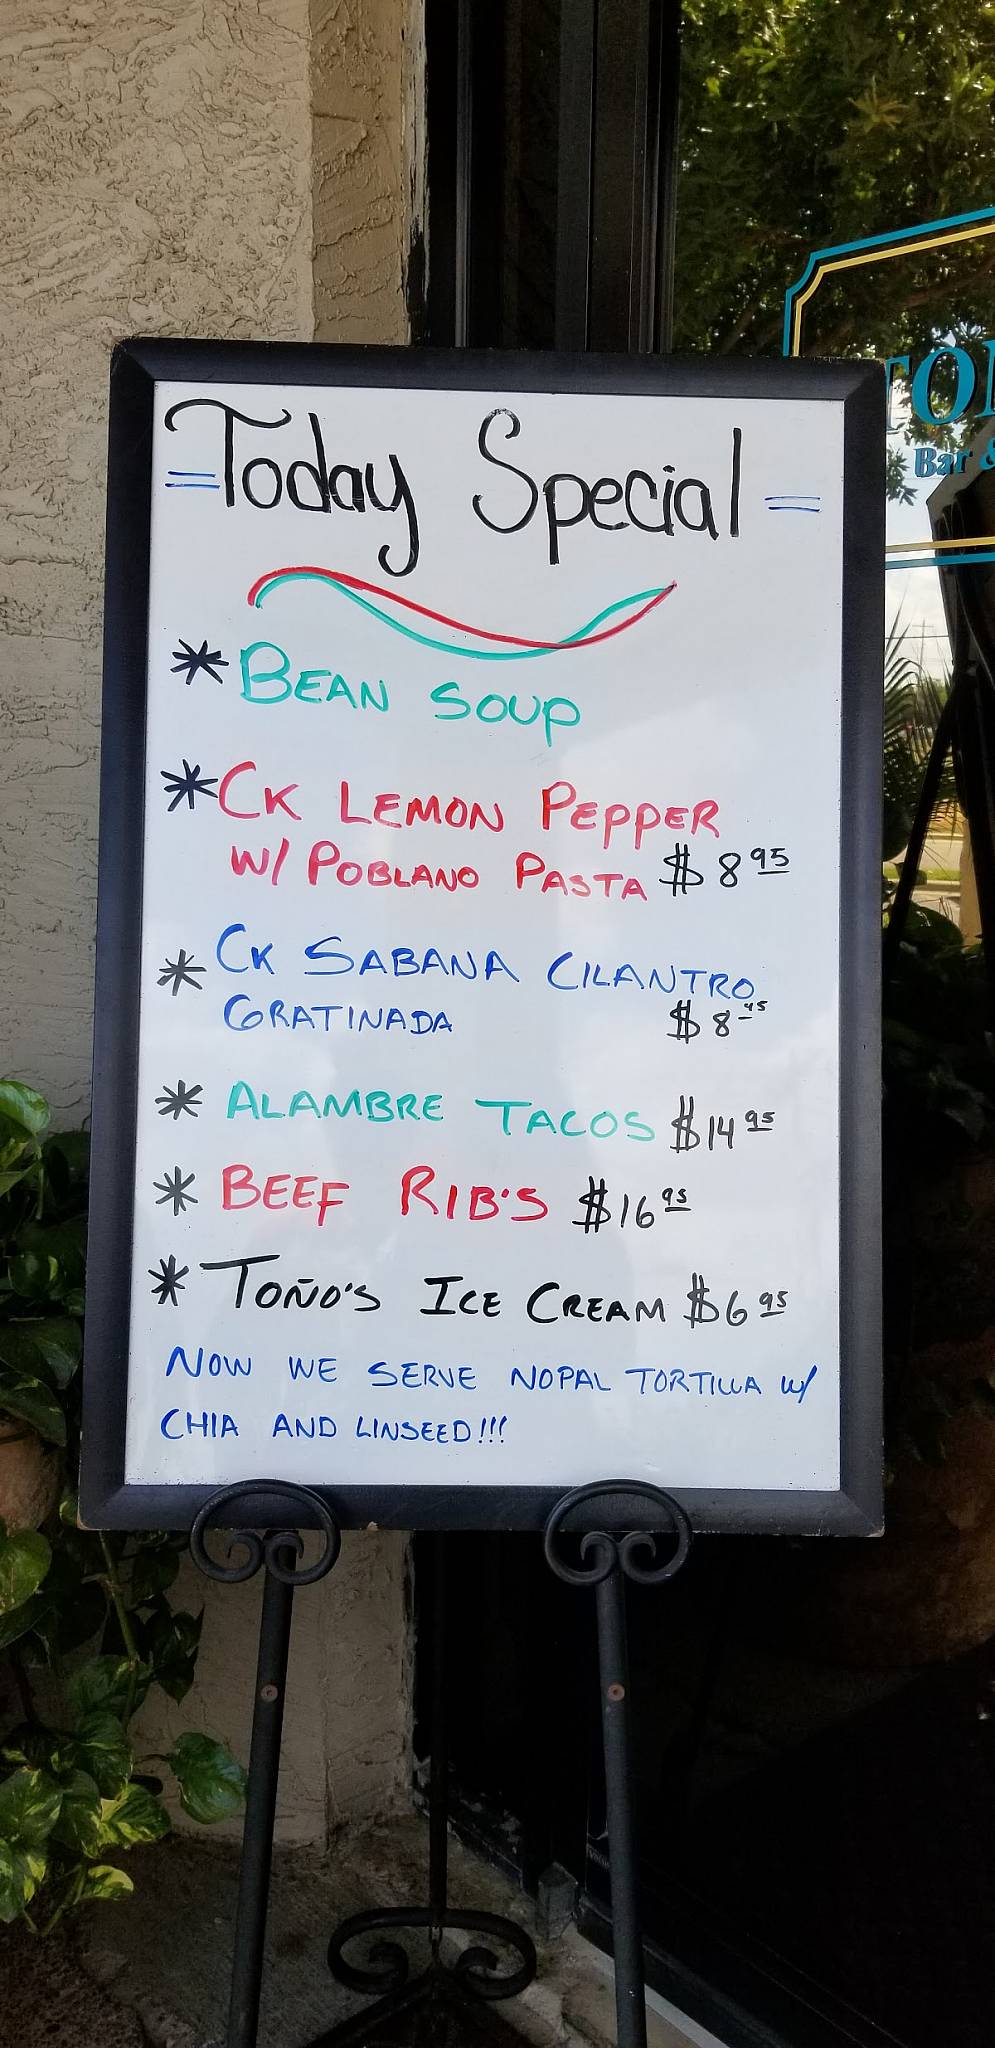 =Today Special=
*BEAN SOUP
*CK LEMON PEPPER
W/ POBLANO PASTA $8 95
*CK SABANA CILANTRO
GRATINADA $8 95
*ALAMBRE TACOS $14 95
*BEEF RIB'S $16 95
*TOÑO'S ICE CREAM $6 95
NOW WE SERVE NOPAL TORTILLA W/
CHIA AND LINSEED!!!
Bar &